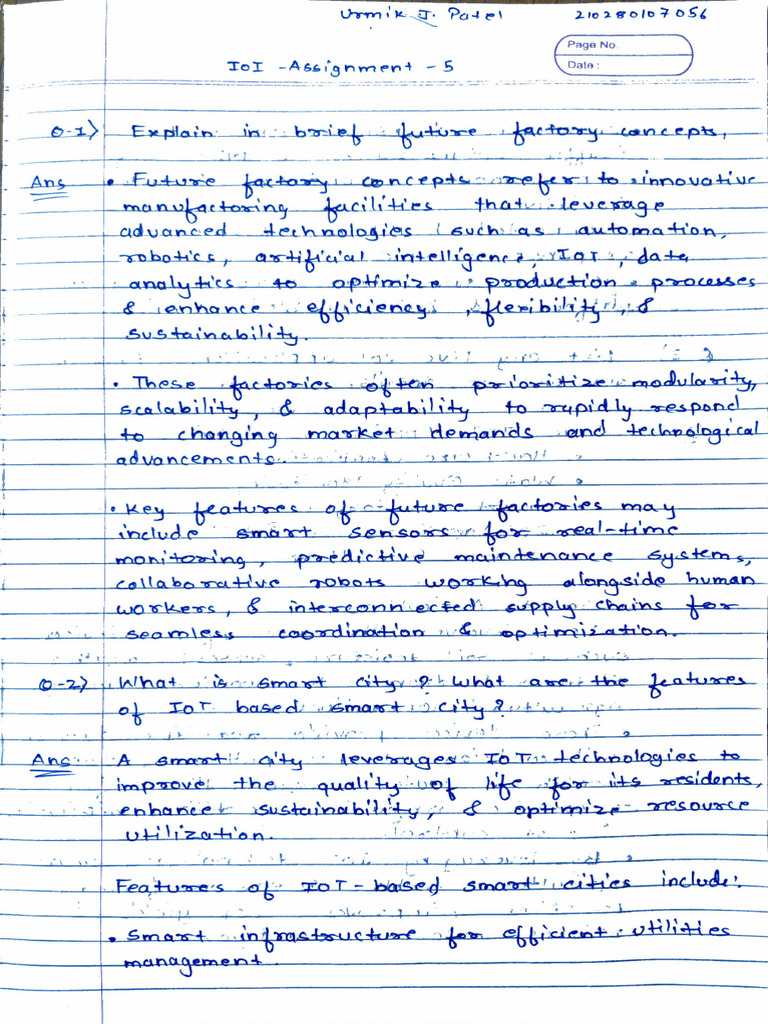 Urmik J. Patel 210280107056
Page No.
Date:
IoI - Assignment - 5
Q-1) Explain in brief future factory concepts,
Ans • Future factory concepts refer to innovative
manufactoring facilities that leverage
advanced technologies such as automation,
robotics, artificial intelligence, IoT, data
analytics to optimize production processes
& enhance efficiency, flexibility, &
sustainability.
• These factories often prioritize modularity,
scalability, & adaptability to rapidly respond
to changing market demands and technological
advancements.
• Key features of future factories may
include smart sensors for real-time
monitoring, predictive maintenance systems,
collaborative robots working alongside human
workers, & interconnected supply chains for
seamless coordination & optimization.
Q-2) What is smart city? What are the features
of IoT based smart city?
Ans A smart city leverages IoT technologies to
improve the quality of life for its residents,
enhance sustainability, & optimize resource
utilization.
Features of IoT-based smart cities include:
• Smart infrastructure for efficient utilities
management.